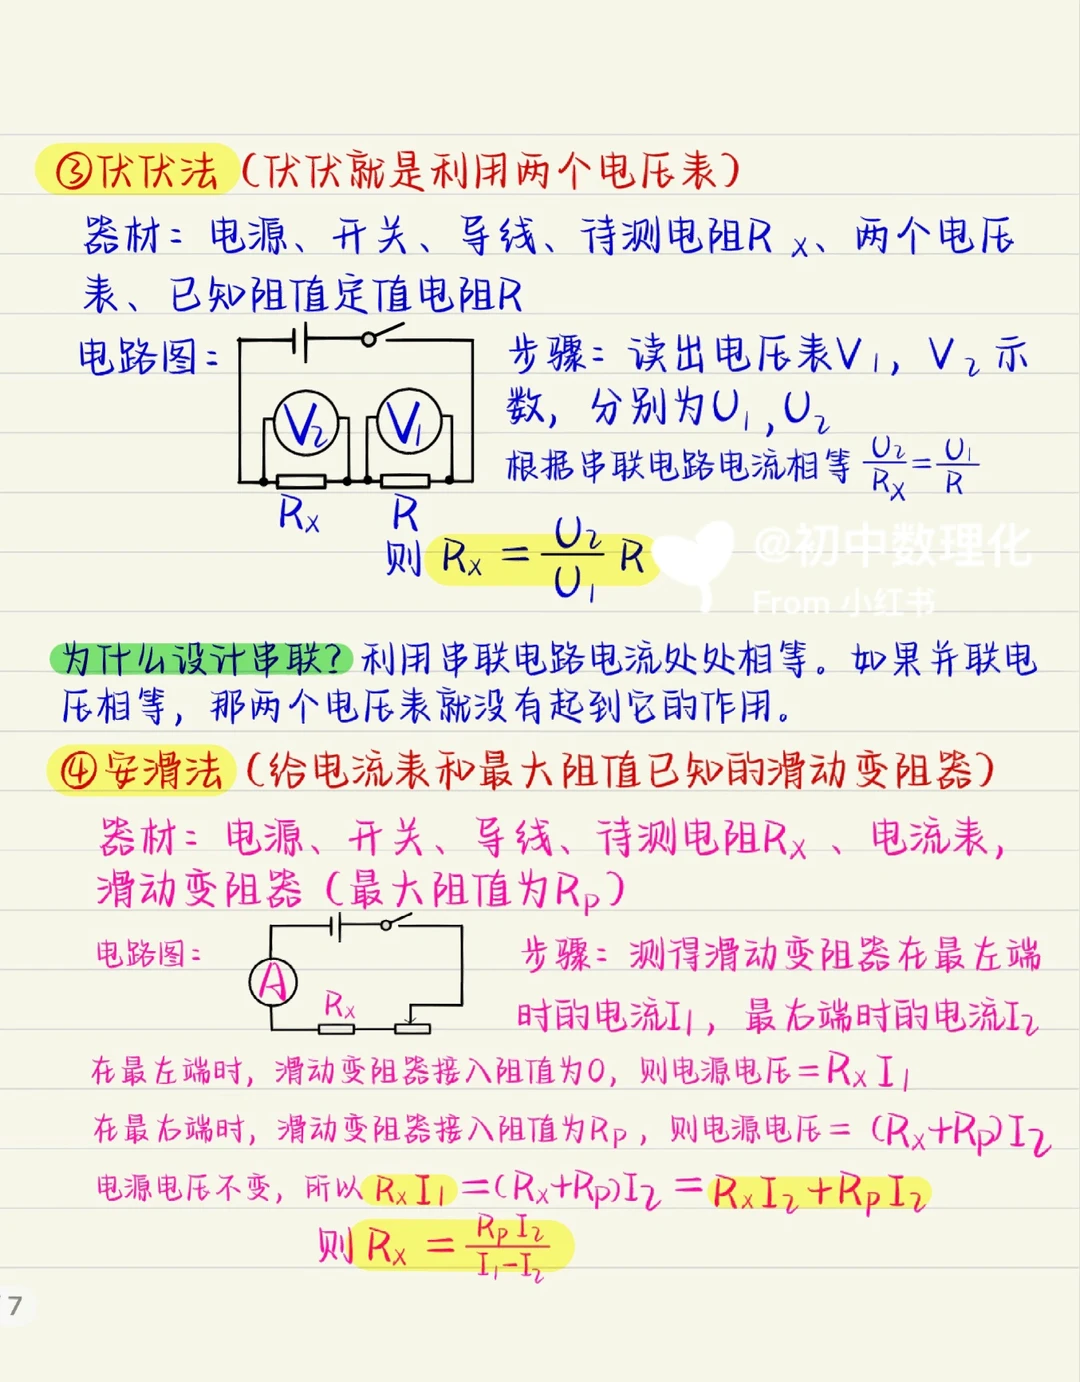 ③伏伏法（伏伏就是利用两个电压表）
器材：电源、开关、导线、待测电阻Rx、两个电压
表、已知阻值定值电阻R
电路图：
V2 V1
Rx R
步骤：读出电压表V1，V2示
数，分别为U1,U2
根据串联电路电流相等 U2/Rx=U1/R
则 Rx = U2/U1 R
@初中数理化
From 小红书
为什么设计串联？利用串联电路电流处处相等。如果并联电
压相等，那两个电压表就没有起到它的作用。
④安滑法（给电流表和最大阻值已知的滑动变阻器）
器材：电源、开关、导线、待测电阻Rx、电流表，
滑动变阻器（最大阻值为Rp）
电路图：
A
Rx
步骤：测得滑动变阻器在最左端
时的电流I1，最右端时的电流I2
在最左端时，滑动变阻器接入阻值为0，则电源电压=RxI1
在最右端时，滑动变阻器接入阻值为Rp，则电源电压=(Rx+Rp)I2
电源电压不变，所以RxI1=(Rx+Rp)I2=RxI2+RpI2
则Rx = RpI2/I1-I2
7